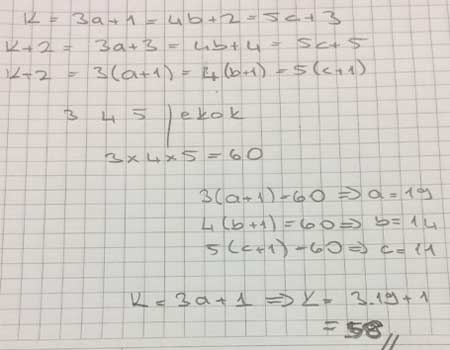 K = 3a+1 = 4b+2 = 5c+3
K+2 = 3a+3 = 4b+4 = 5c+5
K+2 = 3(a+1) = 4(b+1) = 5(c+1)
3 4 5 | ekok
3×4×5=60
3(a+1)=60 ⇒ a=19
4(b+1)=60 ⇒ b=14
5(c+1)=60 ⇒ c=11
K=3a+1 ⇒ K= 3.19+1
= 58 //